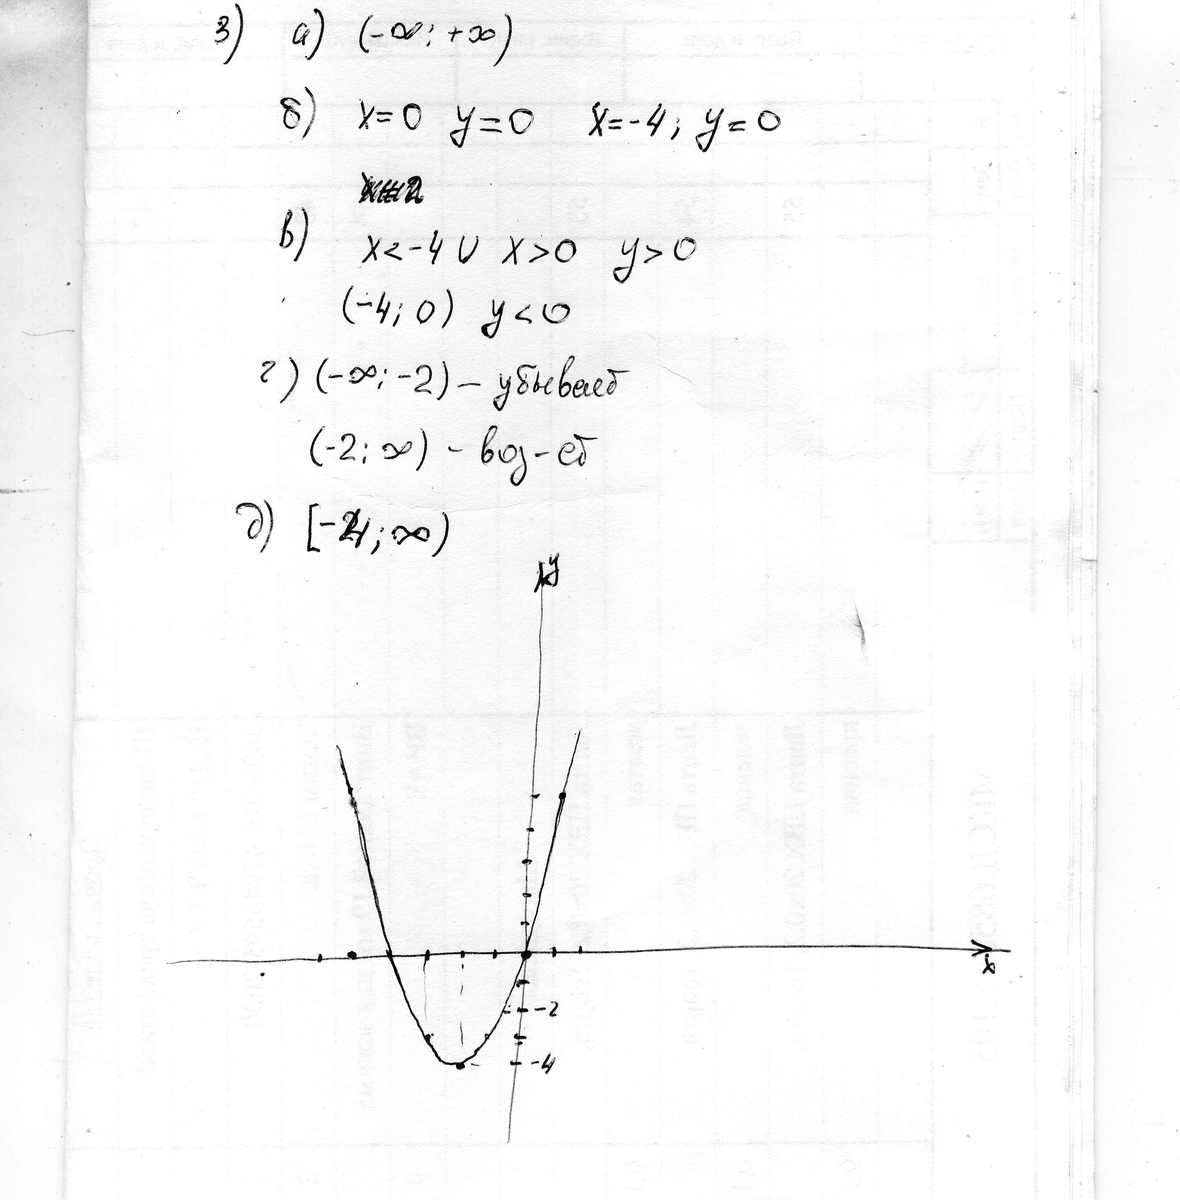 3) а) (-∞; +∞)
б) x=0 y=0 x=-4; y=0
в) x<-4 ∪ x>0 y>0
(-4; 0) y<0
г) (-∞; -2) – убывает
(-2; ∞) – воз-ет
д) [-4; ∞)
y
x
-2
-4